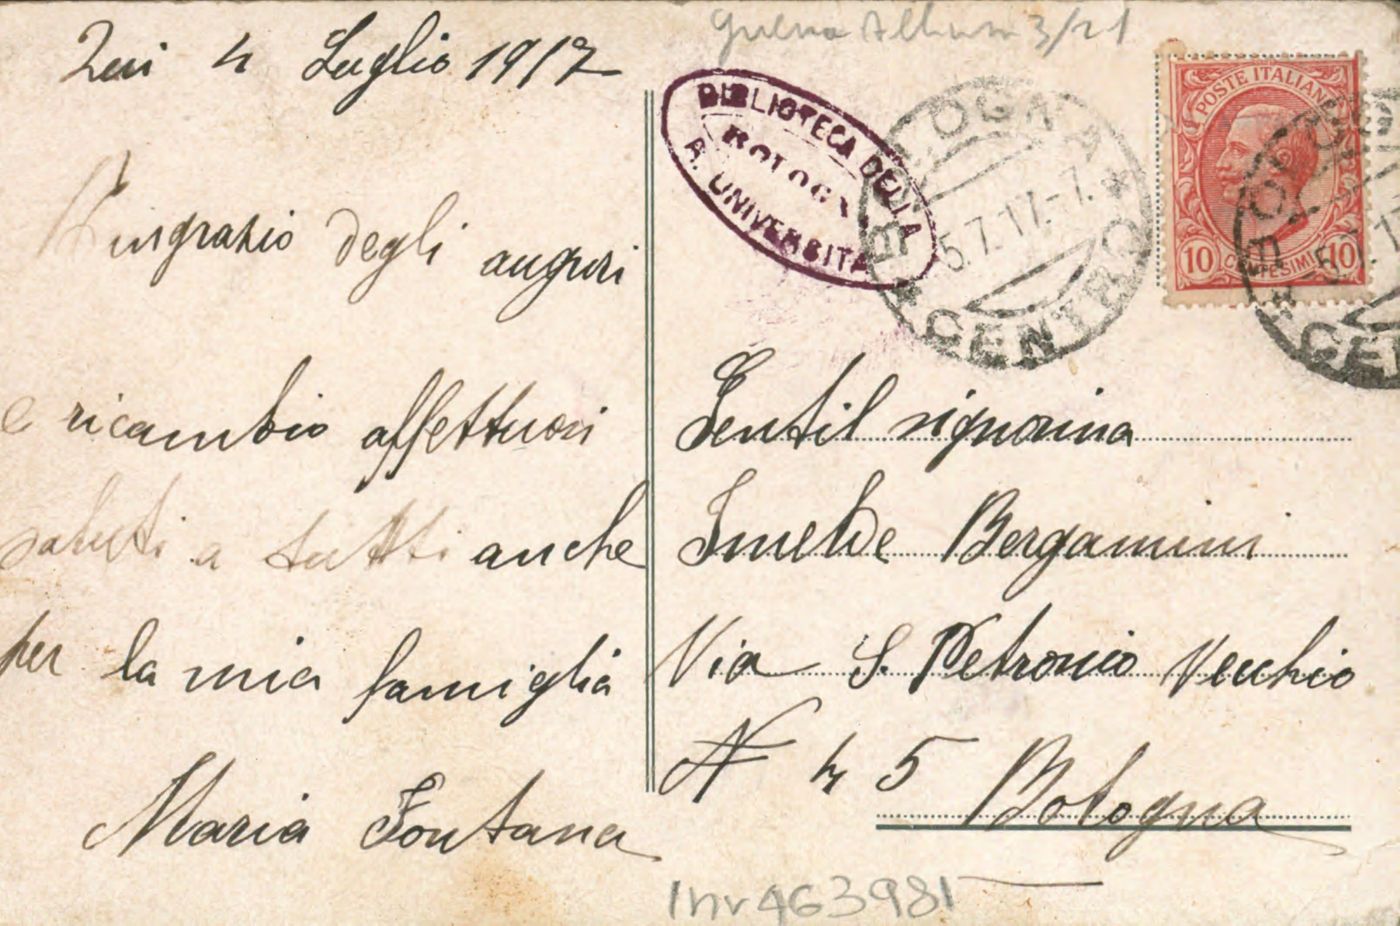 4 Luglio 1917
Ringrazio degli auguri
e ricambio affettuosi
saluti a tutti anche
per la mia famiglia
Maria Fontana
Guerra Album 3/21
BIBLIOTECA DELLA
R. UNIVERSITÀ
BOLOGNA
BOLOGNA
5.7.17.-7.
CENTRO
POSTE ITALIANE
10 CENTESIMI 10
Gentil signorina
Imelde Bergamini
Via S. Petronio Vecchio
N 45 Bologna
Inv 463981